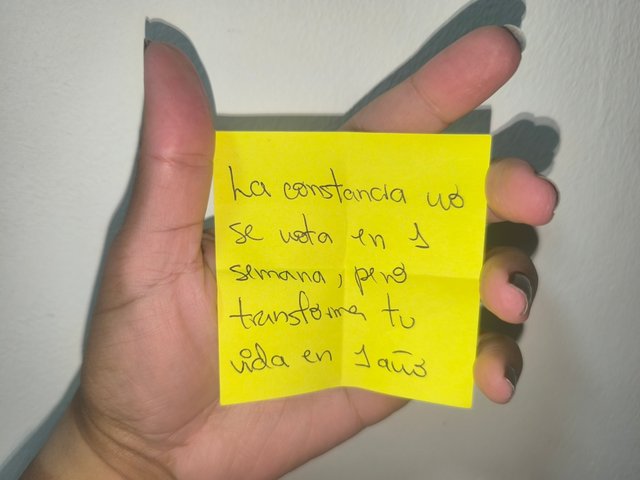 La constancia no
se nota en 1
semana, pero
transforma tu
vida en 1 año